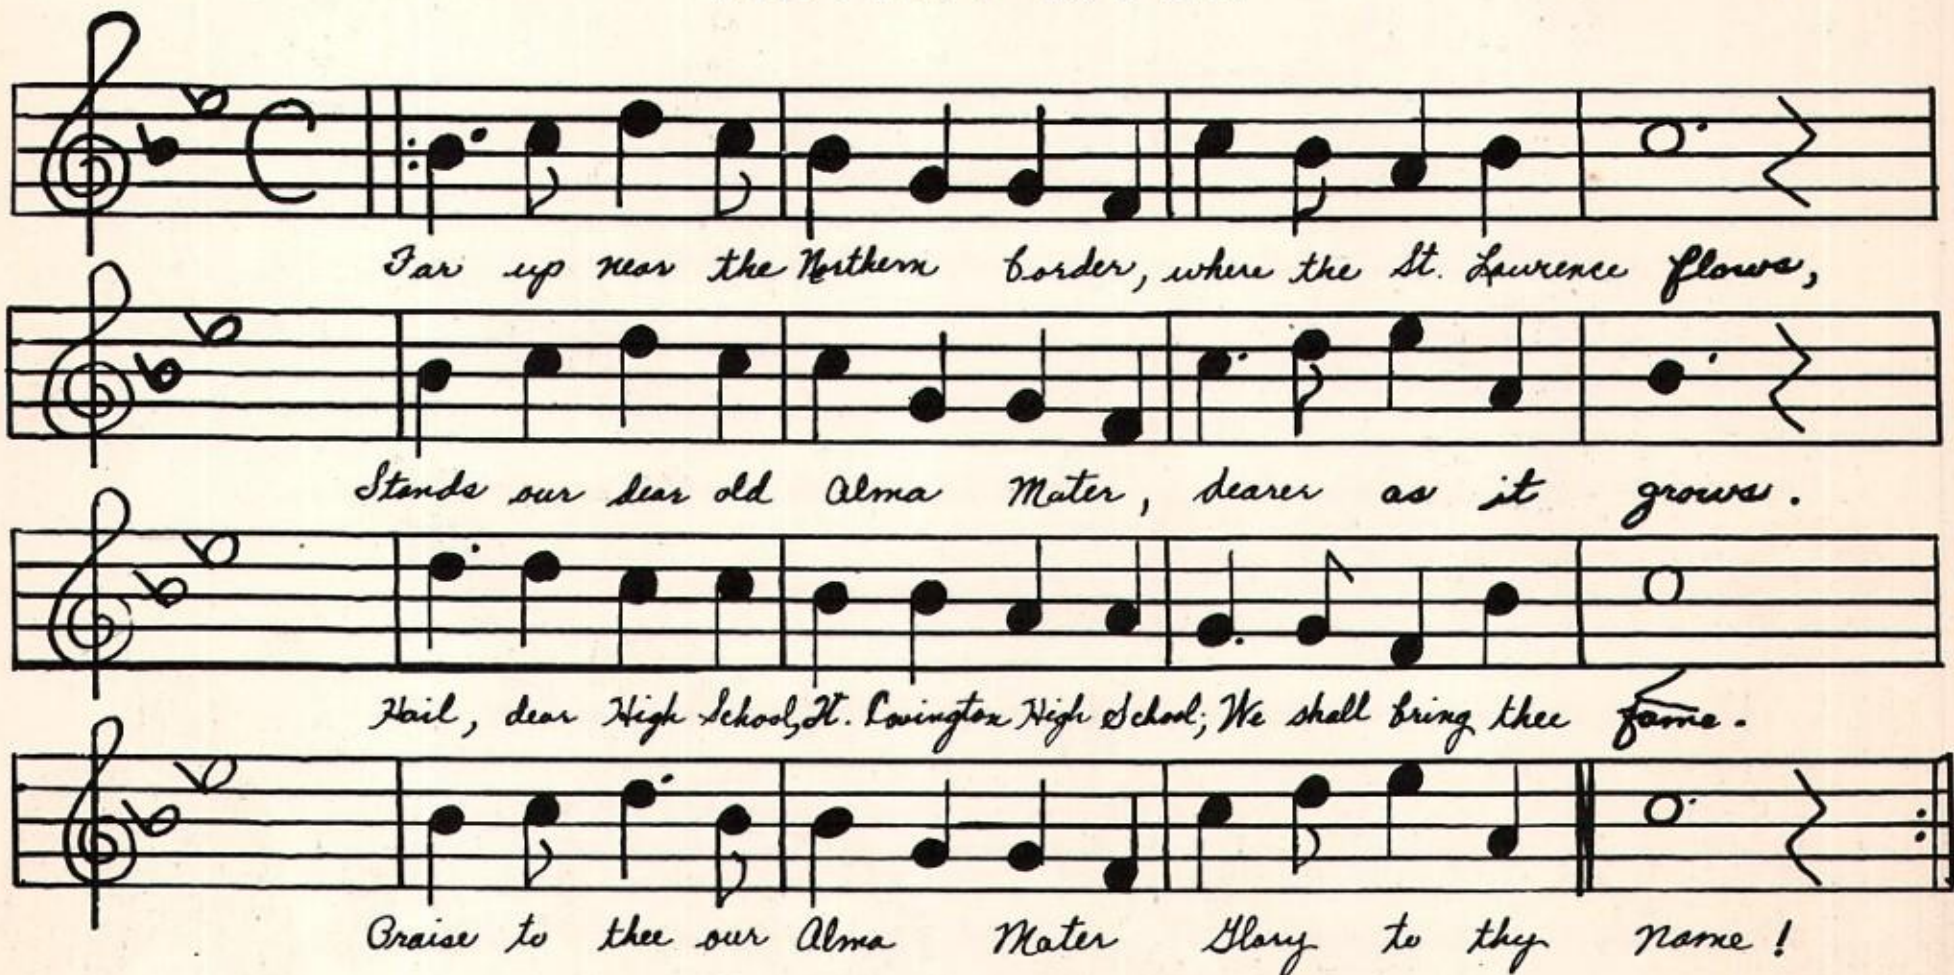 Far up near the Northern border, where the St. Lawrence flows,
Stands our dear old Alma Mater, dearer as it grows.
Hail, dear High School, Ft. Covington High School; We shall bring thee fame.
Praise to thee our Alma Mater Glory to thy name!